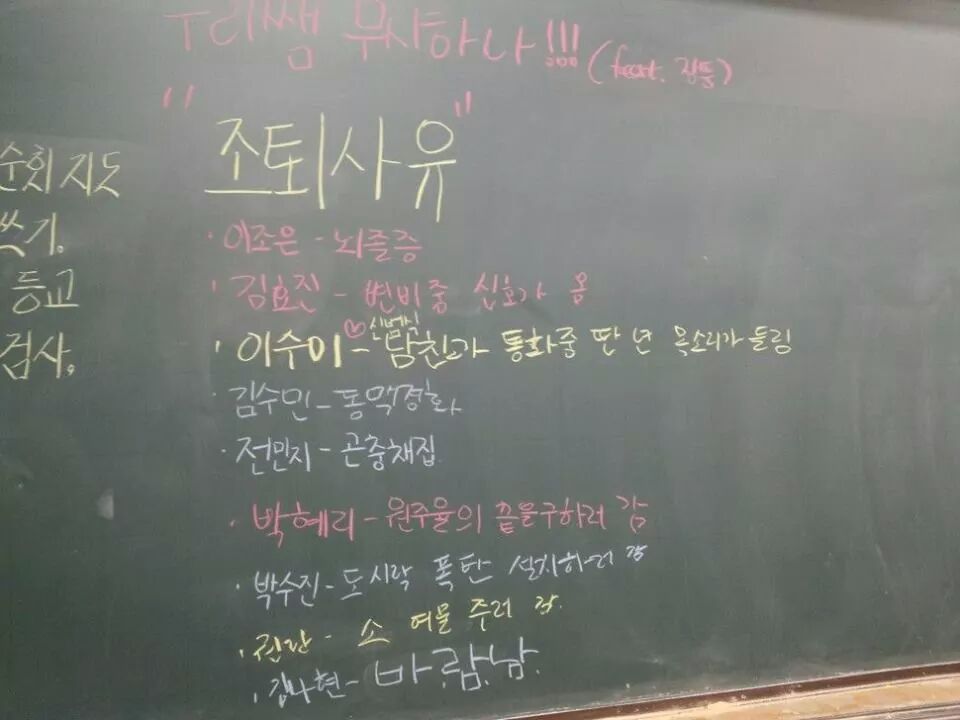 우리쌤 무사하나!!! (feat. 징퉁)
"조퇴사유"
순회지도
쓰기.
등교
검사.
· 이조은 - 뇌졸증
· 김효진 - 변비중 신호가 옴
· 이수이 - ♡신병식 남친과 통화중 딴 년 목소리가 들림
· 김수민 - 동맥경화
· 전민지 - 곤충채집
· 박혜리 - 원주율의 끝을구하러 감
· 박수진 - 도시락 폭탄 설치하러 감
· 권란 - 소 여물 주러 감.
· 김나현 - 바.람.남.